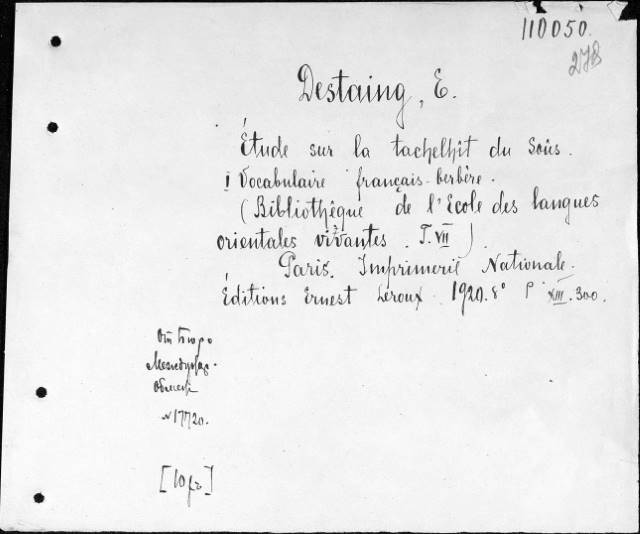 110050.
278
Destaing, E.
Étude sur la tachelhît du Soûs.
I Vocabulaire français-berbère.
(Bibliothêque de l'Ecole des langues
orientales vivantes. T. VII)
Paris. Imprimerie Nationale.
Éditions Ernest Leroux. 1920. 8° P XIII. 300.
От Бюро
Междунар.
Обмена
N 17720.
[10 fr]